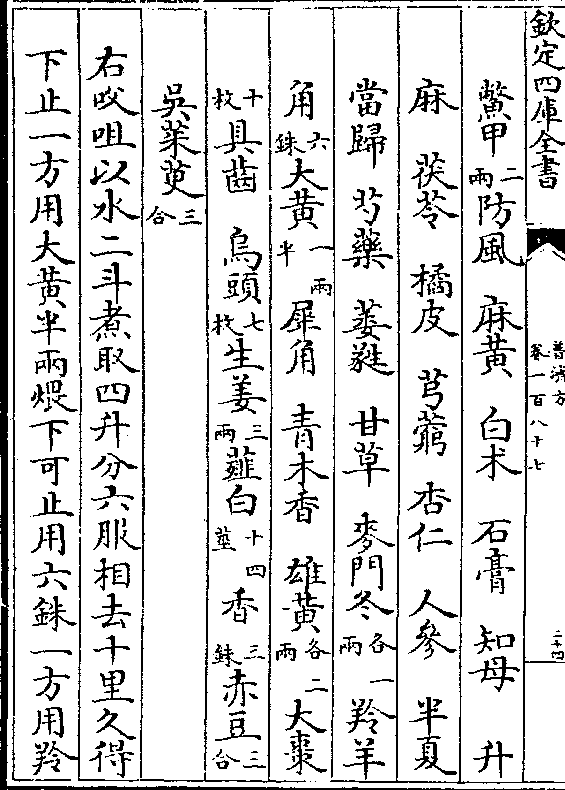 欽定四庫全書
普濟方
卷一百八十七
二十四
鱉甲二兩防風 麻黄 白术 石膏 知母 升
麻 茯苓 橘皮 芎藭 杏仁 人參 半夏
當歸 芍藥 萎蕤 甘草 麥門冬各一兩 羚羊
角六銖大黄一兩半 犀角 青木香 雄黄各二兩 大棗
十枚具齒 烏頭七枚生姜三兩薤白十四莖 香三銖赤豆三合
吳茱萸三合
右㕮咀以水二斗煮取四升分六服相去十里久得
下止一方用大黄半兩煨下可止用六銖一方用羚